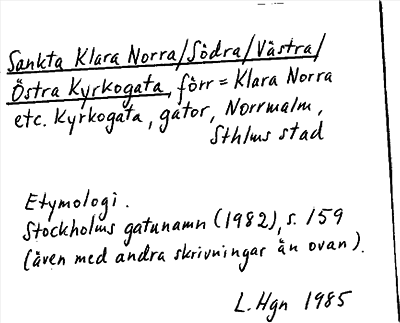 Sankta Klara Norra/Södra/Västra/
Östra Kyrkogata, förr = Klara Norra
etc. Kyrkogata, gator, Norrmalm,
Sthlms stad
Etymologi.
Stockholms gatunamn (1982), s. 159
(även med andra skrivningar än ovan).
L. Hgn 1985